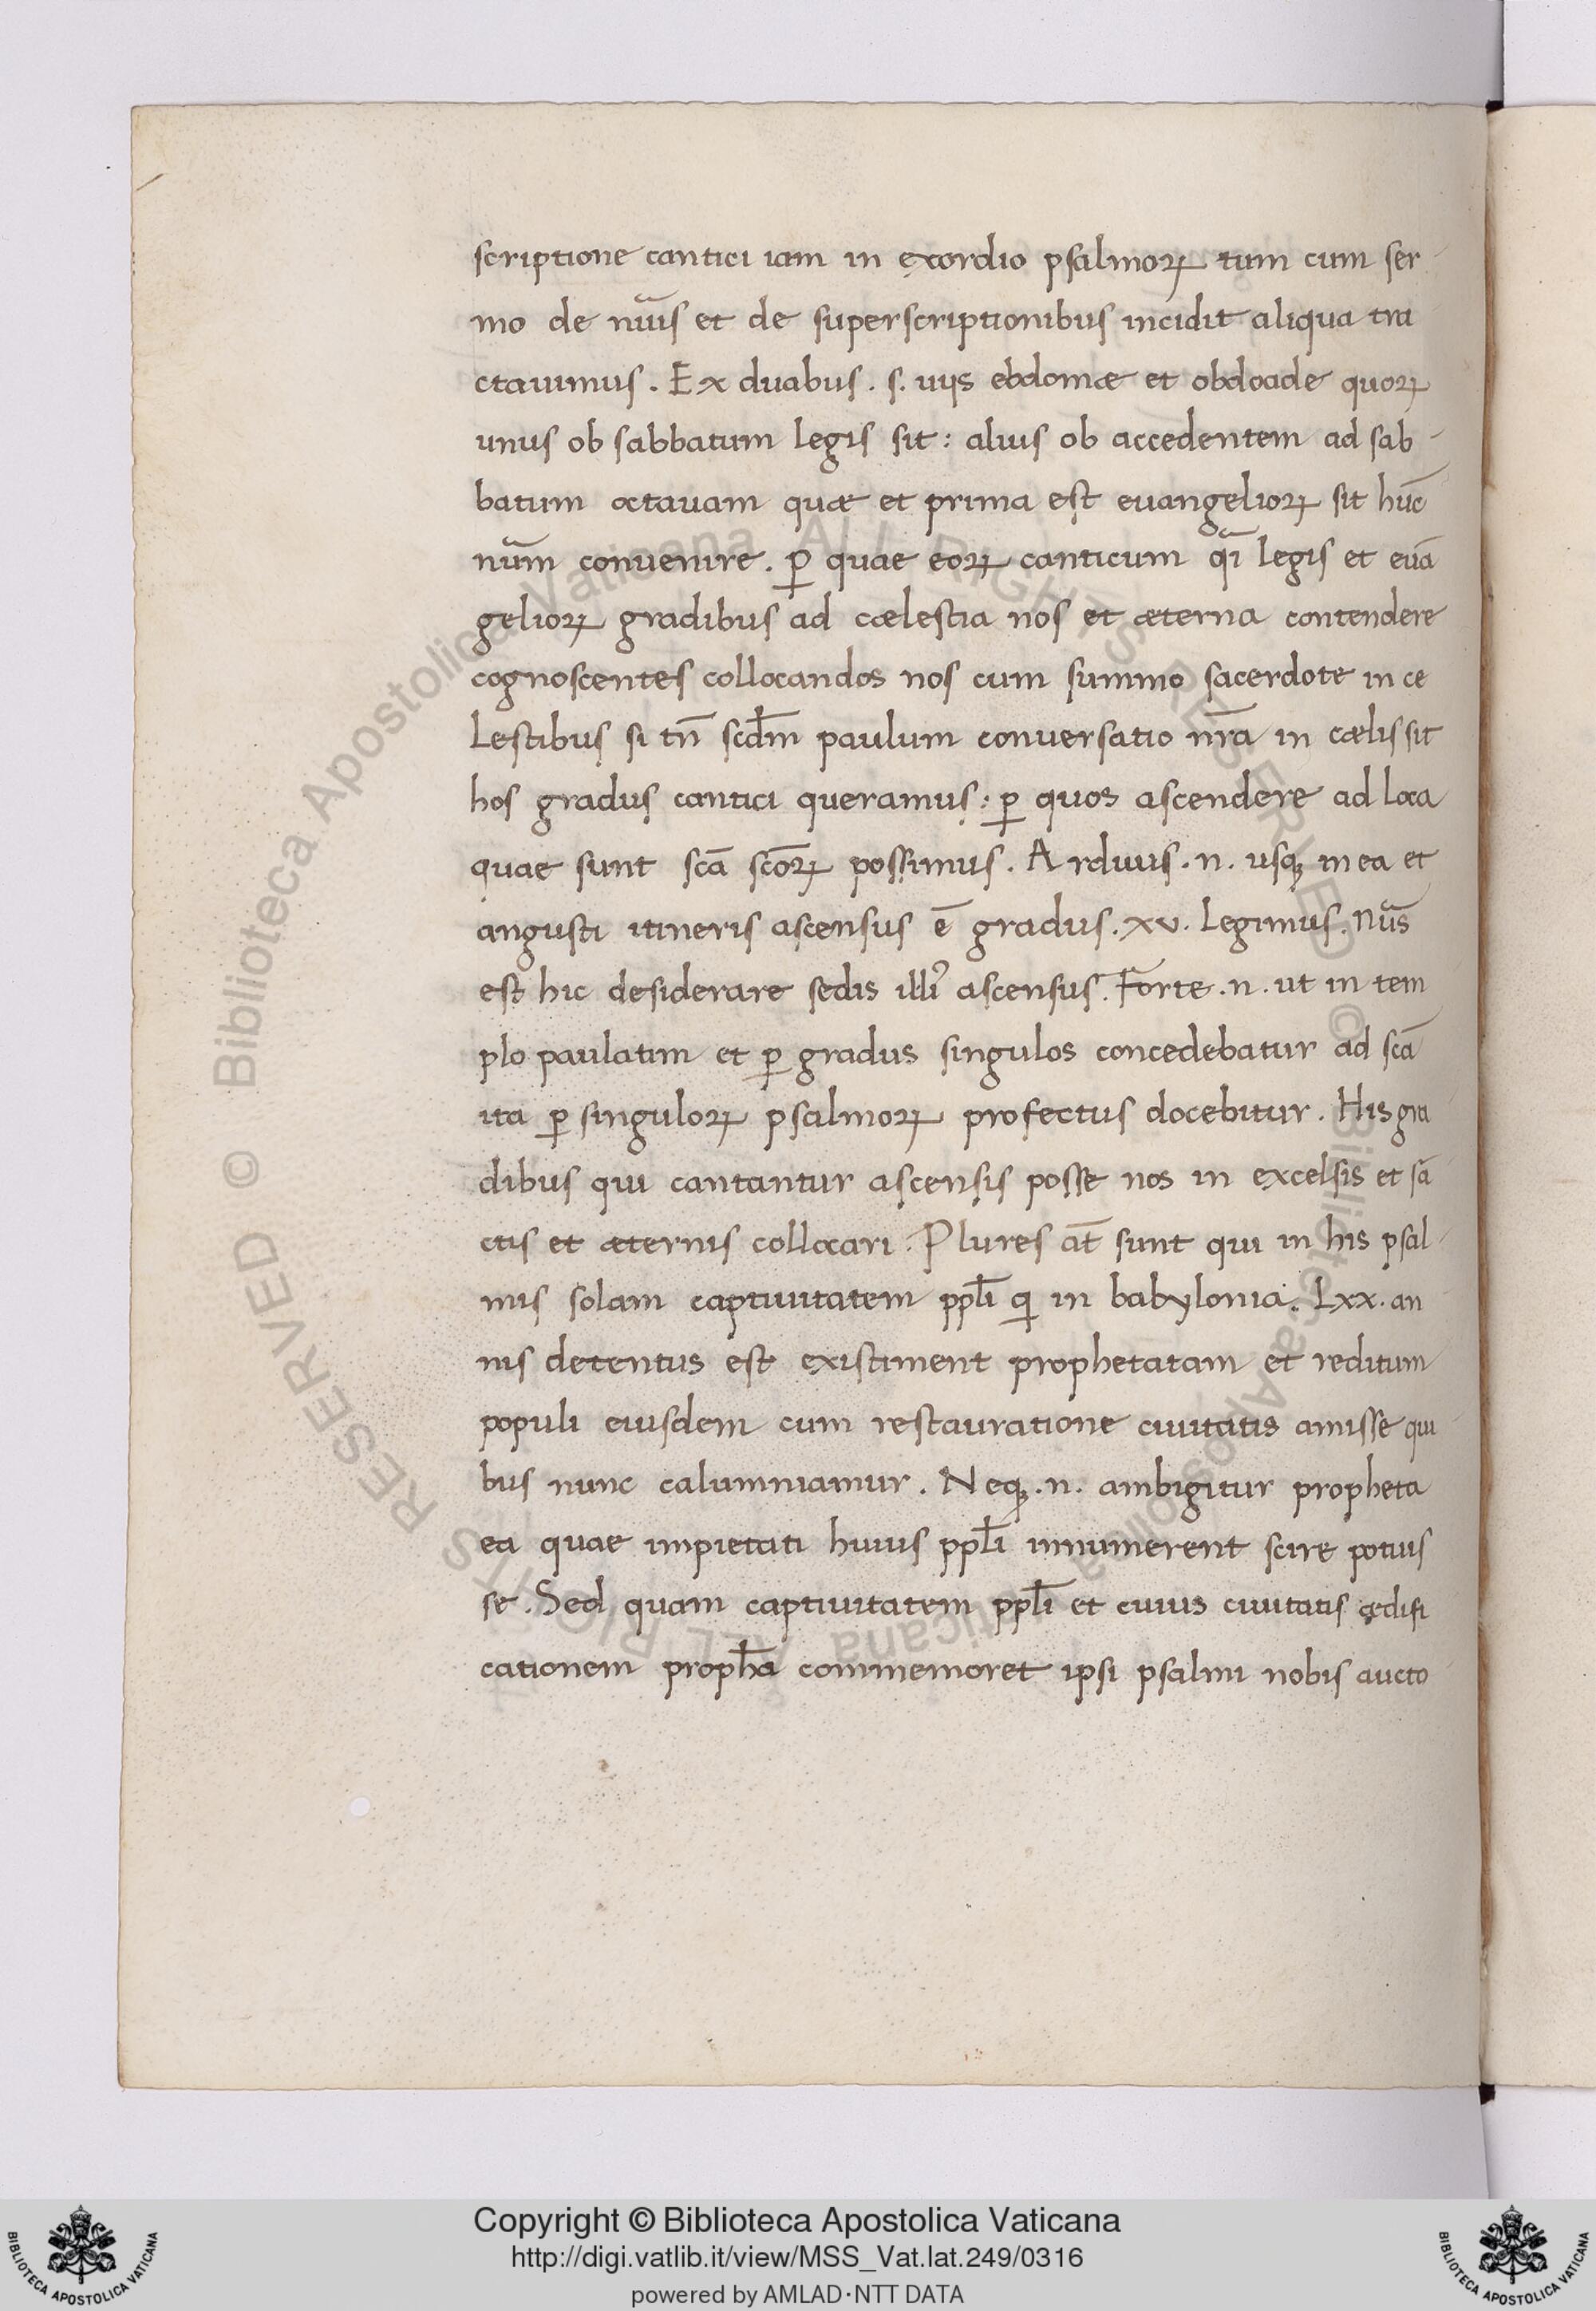 scriptione cantici iam in exordio psalmoꝝ tum cum ser-
mo de nu͞is et de superscriptionibus incidit aliqua tra
ctauimus. Ex duabus .s. uijs ebdomæ et obdoade quoꝝ
unus ob sabbatum legis sit: alius ob accedentem ad sab-
batum octauam quæ et prima est euangelioꝝ sit hūc
nūm conuenire. ꝑ quae eoꝝ canticum qi̅ legis et euā
gelioꝝ gradibus ad cælestia nos et æterna contendere
cognoscentes collocandos nos cum summo sacerdote in ce
lestibus si tn̄ scd̄m paulum conuersatio nr̄a in cælis sit
hos gradus cantici queramus: ꝑ quos ascendere ad loca
quae sunt scā scōꝝ possimus. Arduus .n. usqꝫ in ea et
angusti itineris ascensus ē gradus .xv. legimus. nūs
est hic desiderare sedis illi᾽ ascensus. Forte .n. ut in tem
plo paulatim et ꝑ gradus singulos concedebatur ad scā
ita ꝑ singuloꝝ psalmoꝝ profectus docebitur. His gra
dibus qui cantantur ascensis posse nos in excelsis et sā
ctis et æternis collocari. Plures at̄ sunt qui in his psal-
mis solam captiuitatem ppl̄i qi in babylonia. Lxx. an
nis detentus est existiment prophetatam et reditum
populi eiusdem cum restauratione ciuitatis amisse qui
bus nunc calumniamur. Neqꝫ .n. ambigitur propheta
ea quae impietati huius ppl̄i innumerent scire potuis
se. Sed quam captiuitatem ppl̄i et cuius ciuitatis ædifi
cationem proph̄a commemoret ipsi psalmi nobis aucto
© Biblioteca Apostolica Vaticana ALL RIGHTS RESERVED © Biblioteca Apostolica Vaticana ALL RIGHTS RESERVED
Copyright © Biblioteca Apostolica Vaticana
http://digi.vatlib.it/view/MSS_Vat.lat.249/0316
powered by AMLAD·NTT DATA
BIBLIOTECA APOSTOLICA VATICANA
BIBLIOTECA APOSTOLICA VATICANA